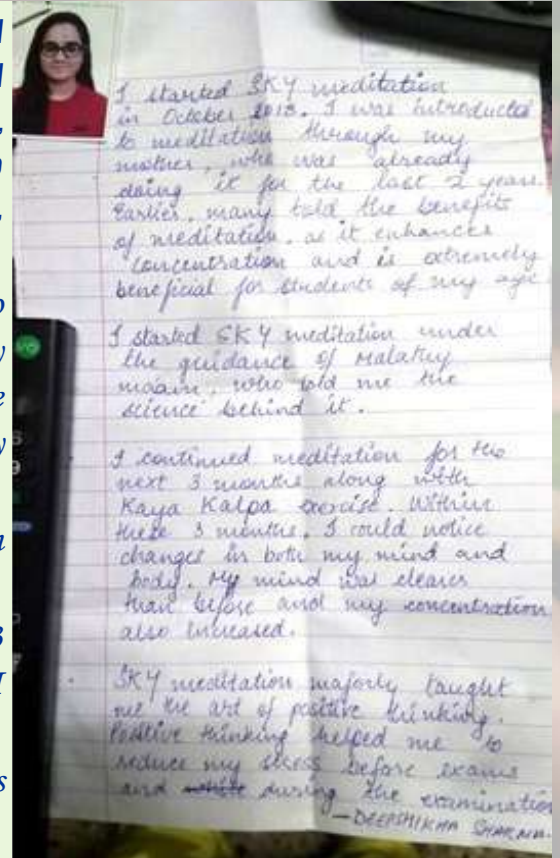 I started SKY meditation
in October 2018. I was introduced
to meditation through my
mother, who was already
doing it for the last 2 years.
Earlier, many told the benefits
of meditation, as it enhances
concentration and is extremely
beneficial for students of my age
I started SKY meditation under
the guidance of Malathy
maam, who told me the
science behind it.
I continued meditation for the
next 3 months along with
Kaya Kalpa exercise. Within
these 3 months, I could notice
changes in both my mind and
body. My mind was clearer
than before and my concentration
also increased.
SKY meditation majorly taught
me the art of positive thinking.
Positive thinking helped me to
reduce my stress before exams
and during the examination
—DEEPSHIKHA SHARMA.